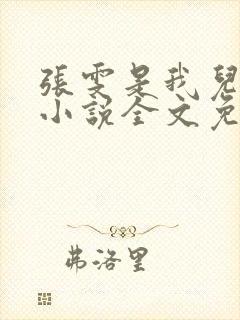 張雯是我兒
小說全文免
弗洛里